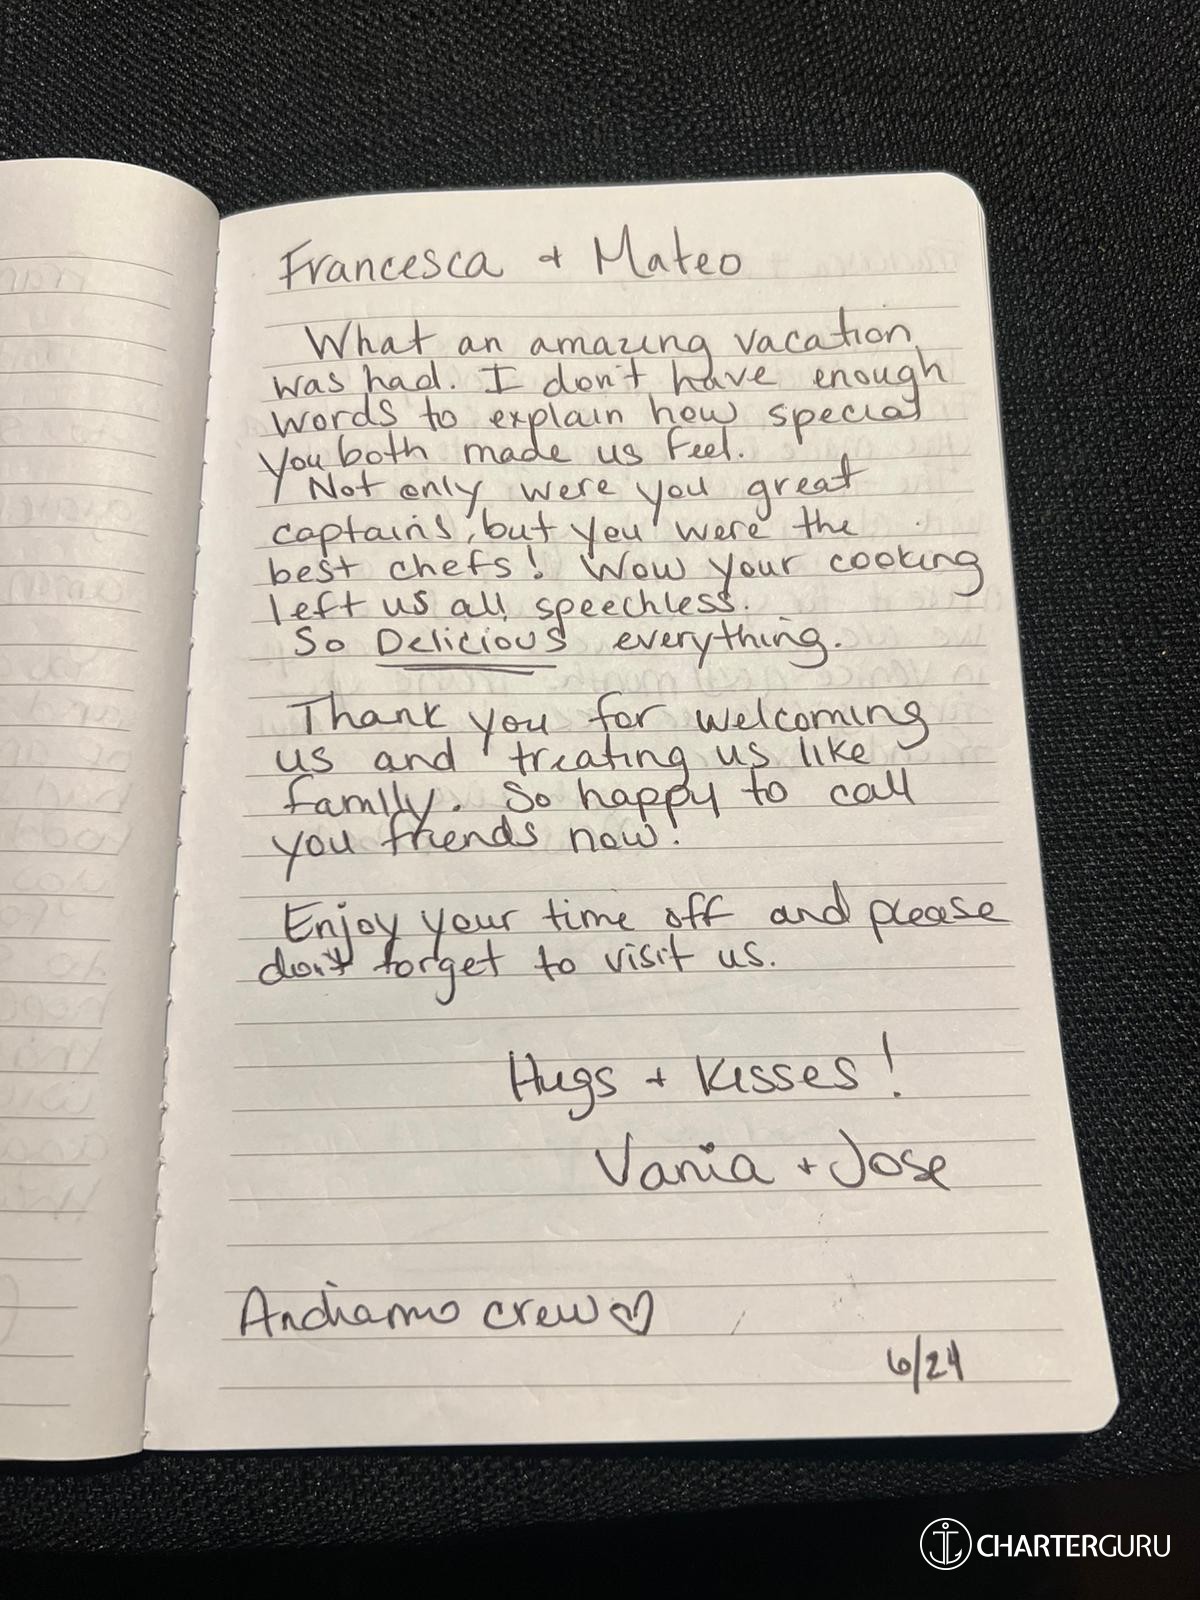 Francesca + Mateo
What an amazing vacation
was had. I don't have enough
words to explain how special
you both made us feel.
Not only were you great
captains, but you were the
best chefs! Wow your cooking
left us all speechless.
So Delicious everything.
Thank you for welcoming
us and treating us like
family. So happy to call
you friends now!
Enjoy your time off and please
don't forget to visit us.
Hugs + Kisses!
Vania + Jose
Andiamo crew♡
6/24
CHARTERGURU